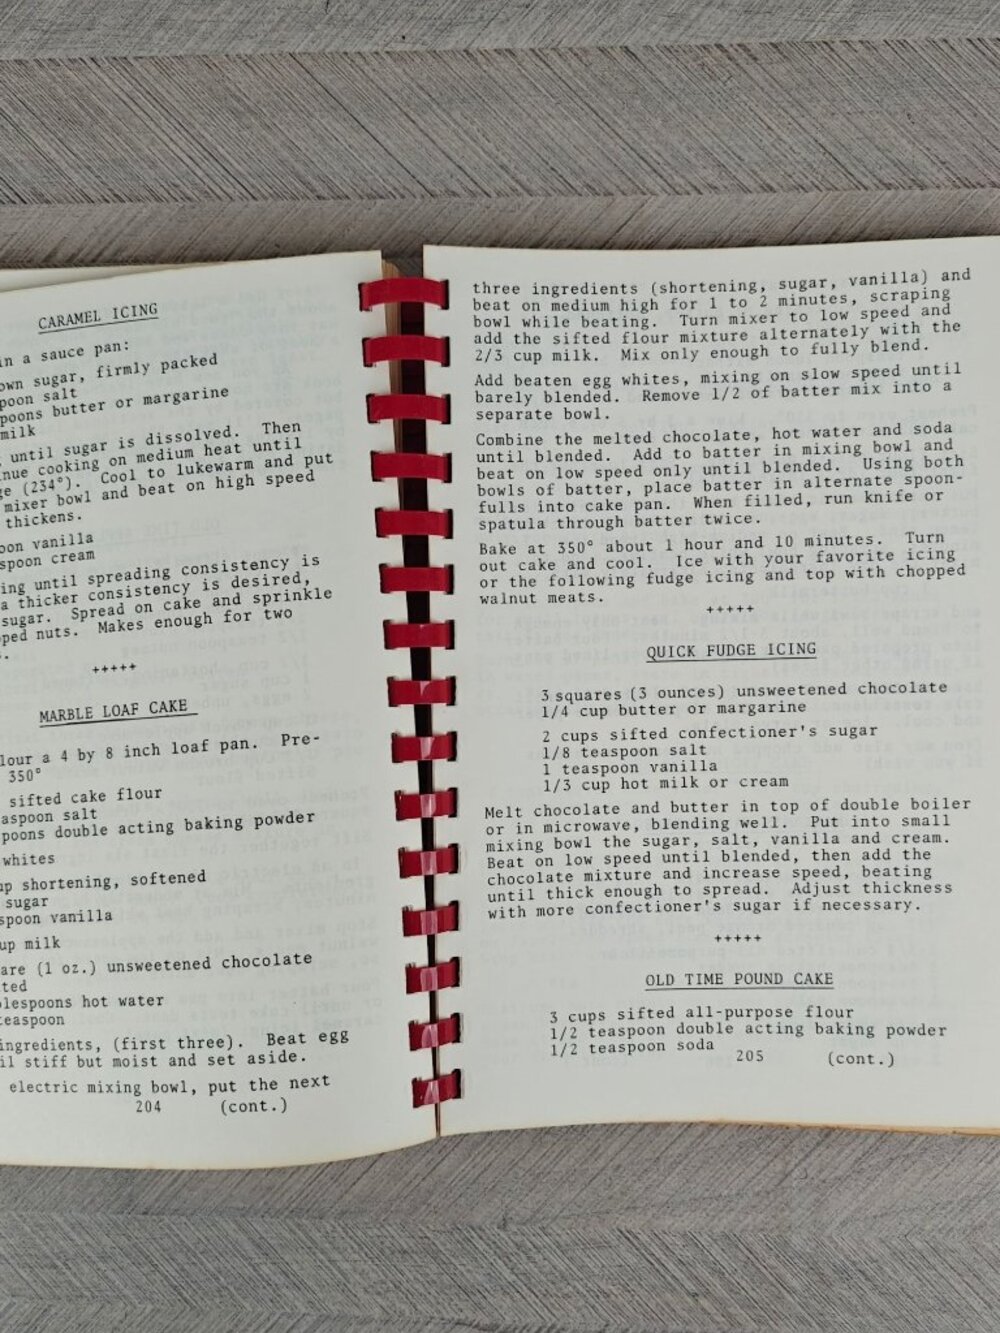 CARAMEL ICING
in a sauce pan:
own sugar, firmly packed
poon salt
poons butter or margarine
milk
until sugar is dissolved. Then
nue cooking on medium heat until
ge (234°). Cool to lukewarm and put
mixer bowl and beat on high speed
thickens.
oon vanilla
spoon cream
ing until spreading consistency is
a thicker consistency is desired,
sugar. Spread on cake and sprinkle
ped nuts. Makes enough for two
s.
+++++
MARBLE LOAF CAKE
lour a 4 by 8 inch loaf pan. Pre-
350°
sifted cake flour
aspoon salt
poons double acting baking powder
whites
up shortening, softened
sugar
spoon vanilla
up milk
are (1 oz.) unsweetened chocolate
ted
blespoons hot water
teaspoon
ingredients, (first three). Beat egg
il stiff but moist and set aside.
electric mixing bowl, put the next
204 (cont.)
three ingredients (shortening, sugar, vanilla) and
beat on medium high for 1 to 2 minutes, scraping
bowl while beating. Turn mixer to low speed and
add the sifted flour mixture alternately with the
2/3 cup milk. Mix only enough to fully blend.
Add beaten egg whites, mixing on slow speed until
barely blended. Remove 1/2 of batter mix into a
separate bowl.
Combine the melted chocolate, hot water and soda
until blended. Add to batter in mixing bowl and
beat on low speed only until blended. Using both
bowls of batter, place batter in alternate spoon-
fulls into cake pan. When filled, run knife or
spatula through batter twice.
Bake at 350° about 1 hour and 10 minutes. Turn
out cake and cool. Ice with your favorite icing
or the following fudge icing and top with chopped
walnut meats.
+++++
QUICK FUDGE ICING
3 squares (3 ounces) unsweetened chocolate
1/4 cup butter or margarine
2 cups sifted confectioner's sugar
1/8 teaspoon salt
1 teaspoon vanilla
1/3 cup hot milk or cream
Melt chocolate and butter in top of double boiler
or in microwave, blending well. Put into small
mixing bowl the sugar, salt, vanilla and cream.
Beat on low speed until blended, then add the
chocolate mixture and increase speed, beating
until thick enough to spread. Adjust thickness
with more confectioner's sugar if necessary.
+++++
OLD TIME POUND CAKE
3 cups sifted all-purpose flour
1/2 teaspoon double acting baking powder
1/2 teaspoon soda
205 (cont.)